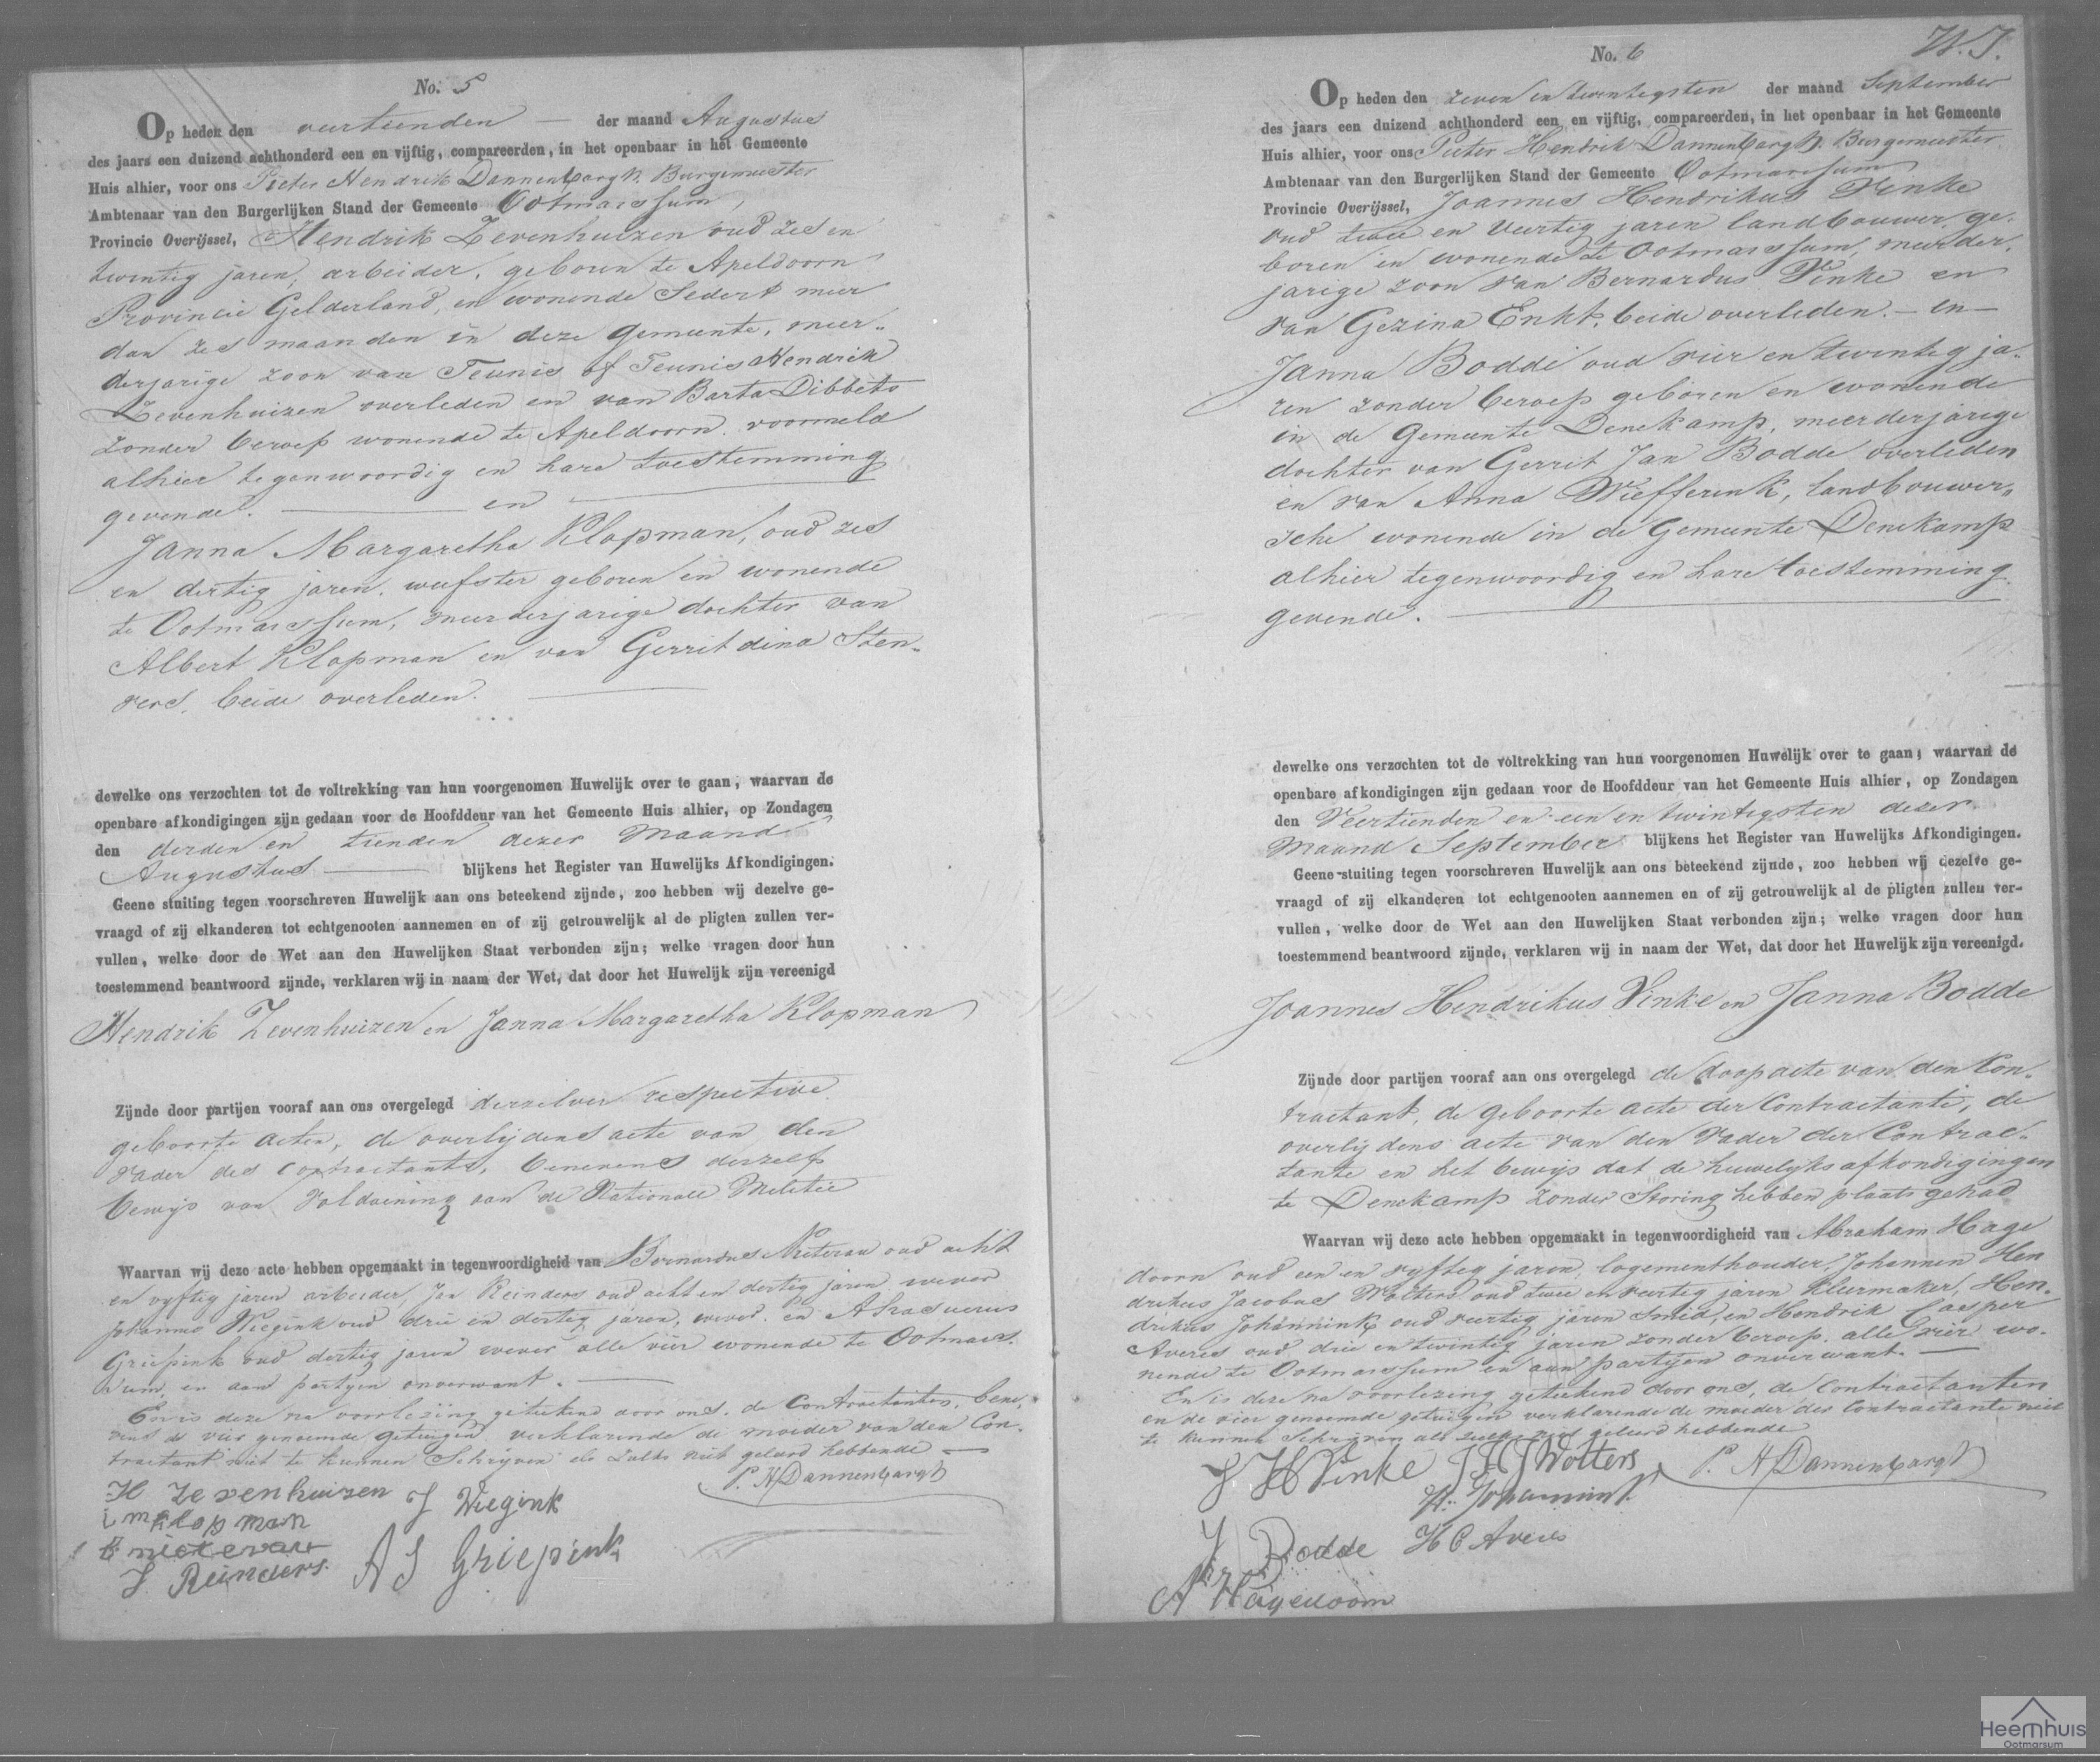 No. 5
Op heden den veertienden — der maand Augustus
des jaars een duizend achthonderd een en vijftig, compareerden, in het openbaar in het Gemeente
Huis alhier, voor ons Pieter Hendrik Dannenbargh Burgemeester
Ambtenaar van den Burgerlijken Stand der Gemeente Ootmarssum,
Provincie Overijssel, Hendrik Zevenhuizen oud zes en
twintig jaren, arbeider, geboren te Apeldoorn
Provincie Gelderland, en wonende Sedert meer
dan zes maanden in deze gemeente, meer-
derjarige zoon van Teunis of Teunis Hendrik
Zevenhuizen overleden en van Barta Dibbets
zonder beroep wonende te Apeldoorn voormeld
alhier tegenwoordig en hare toestemming
gevende. — en —
Janna Margaretha Klopman, oud zes
en dertig jaren, weefster geboren en wonende
te Ootmarssum, meerderjarige dochter van
Albert Klopman en van Gerritdina Sten-
vers, beide overleden. —
dewelke ons verzochten tot de voltrekking van hun voorgenomen Huwelijk over te gaan, waarvan de
openbare afkondigingen zijn gedaan voor de Hoofddeur van het Gemeente Huis alhier, op Zondagen
den derden en tienden dezer Maand
Augustus — blijkens het Register van Huwelijks Afkondigingen.
Geene stuiting tegen voorschreven Huwelijk aan ons beteekend zijnde, zoo hebben wij dezelve ge-
vraagd of zij elkanderen tot echtgenooten aannemen en of zij getrouwelijk al de pligten zullen ver-
vullen, welke door de Wet aan den Huwelijken Staat verbonden zijn; welke vragen door hun
toestemmend beantwoord zijnde, verklaren wij in naam der Wet, dat door het Huwelijk zijn vereenigd
Hendrik Zevenhuizen en Janna Margaretha Klopman
Zijnde door partijen vooraf aan ons overgelegd derzelver respective
geboorte acten, de overlijdens acte van den
vader des contractants, benevens deszelfs
bewijs van voldoening aan de Nationale Militie
Waarvan wij deze acte hebben opgemaakt in tegenwoordigheid van Bernardus oud acht
en vyftig jaren arbeider, Jan Reinders oud acht en dertig jaren wever
Johannes Wiegink oud drie en dertig jaren, wever en Ahasuerus
Griepink oud dertig jaren wever alle vier wonende te Ootmars-
sum, en aan partyen onverwant. —
En is deze na voorlezing geteekend door ons, de Contractanten, bene-
vens de vier genoemde getuigen verklarende de moeder van den Con-
tractant niet te kunnen Schrijven als zulks niet geleerd hebbende —
H Zevenhuizen J Wiegink P. H Dannenbargh
J m klopman
J Reinders. A S Griepink
No. 6 W. J.
Op heden den zeven en twentigsten der maand September
des jaars een duizend achthonderd een en vijftig, compareerden, in het openbaar in het Gemeente
Huis alhier, voor ons Pieter Hendrik Dannenbargh Burgemeester
Ambtenaar van den Burgerlijken Stand der Gemeente Ootmarssum
Provincie Overijssel, Joannes Hendrikus Vinke
oud twee en veertig jaren landbouwer, ge-
boren en wonende te Ootmarssum, meerder-
jarige zoon van Bernardus Vinke en
van Gezina Enkt, beide overleden. — en —
Janna Bodde oud vier en twintig ja-
ren zonder beroep geboren en wonende
in de Gemeente Denekamp, meerderjarige
dochter van Gerrit Jan Bodde overleden
en van Anna Wiefferink, landbouwer-
sche wonende in de Gemeente Denekamp
alhier tegenwoordig en hare toestemming
gevende. —
dewelke ons verzochten tot de voltrekking van hun voorgenomen Huwelijk over te gaan; waarvan de
openbare afkondigingen zijn gedaan voor de Hoofddeur van het Gemeente Huis alhier, op Zondagen
den Veertienden en een en twintigsten dezer
Maand September blijkens het Register van Huwelijks Afkondigingen.
Geene stuiting tegen voorschreven Huwelijk aan ons beteekend zijnde, zoo hebben wij dezelve ge-
vraagd of zij elkanderen tot echtgenooten aannemen en of zij getrouwelijk al de pligten zullen ver-
vullen, welke door de Wet aan den Huwelijken Staat verbonden zijn; welke vragen door hun
toestemmend beantwoord zijnde, verklaren wij in naam der Wet, dat door het Huwelijk zijn vereenigd.
Joannes Hendrikus Vinke en Janna Bodde
Zijnde door partijen vooraf aan ons overgelegd de doopacte van den Con-
tractant, de geboorte acte der Contractante, de
overlijdens acte van den Vader der Contrac-
tante en het bewijs dat de huwelijks afkondigingen
te Denekamp zonder Storing hebben plaats gehad
Waarvan wij deze acte hebben opgemaakt in tegenwoordigheid van Abraham Hage
doorn oud een en vyftig jaren, logementhouder, Johannen Hen
drikus Jacobus Wolters oud twee en veertig jaren kleermaker, Hen-
drikus Johannink oud veertig jaren Smid, en Hendrik Casper
Averes oud drie en twintig jaren zonder beroep, alle vier wo-
nende te Ootmarssum en aan partijen onverwant. —
En is deze na voorlezing geteekend door ons, de Contractanten
en de vier genoemde getuigen verklarende de moeder der Contractante niet
te kunnen Schrijven als zulks niet geleerd hebbende
J H Vinke J H J Wolters P. H Dannenbargh
H: Johannink
J Bodde H C Averes
Abr Hagedoorn
Heemhuis
Ootmarsum